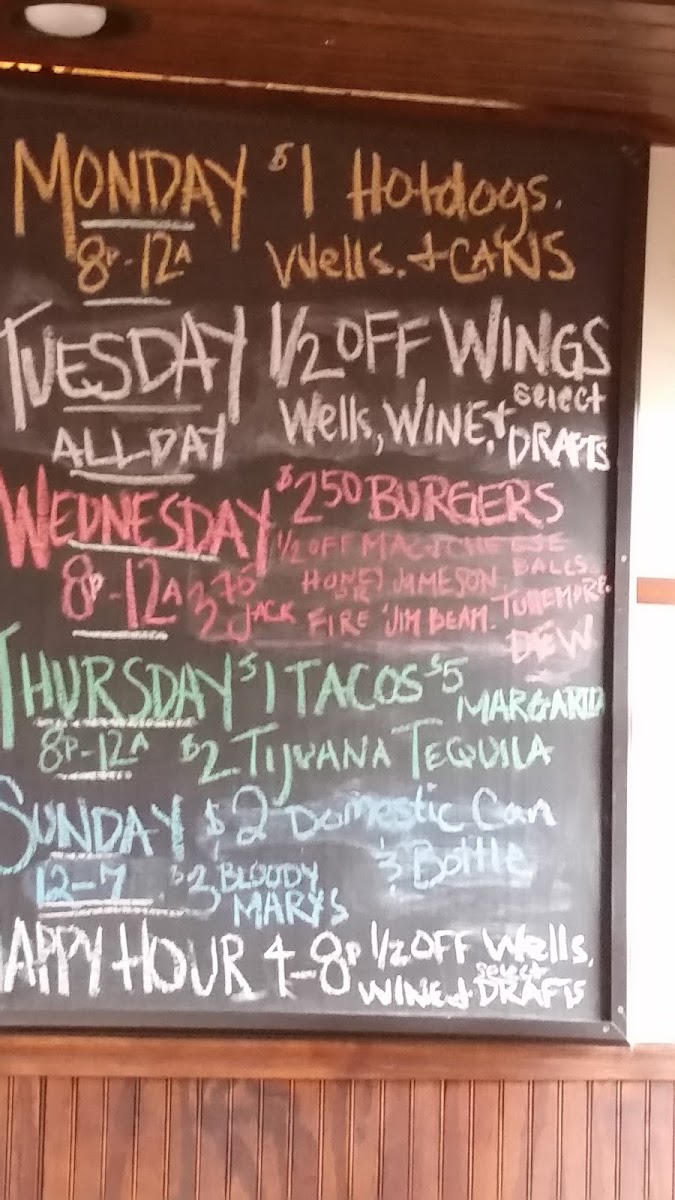 MONDAY $1 Hotdogs.
8P-12A Wells. + CANS
TUESDAY 1/2 OFF WINGS
ALL DAY Wells, WINE, + select DRAFTS
WEDNESDAY $250 BURGERS
1/2 OFF MAC & CHEESE BALLS
8P-12A 375 HONEY JAMESON. TULLEMORE.
JACK FIRE JIM BEAM. DEW
THURSDAY $1 TACOS $5 MARGARITA
8P-12A $2 TIJUANA TEQUILA
SUNDAY $2 Domestic Can
12-7 $3 BLOODY MARYS $3 Bottle
HAPPY HOUR 4-8P 1/2 OFF Wells,
WINE + select DRAFTS